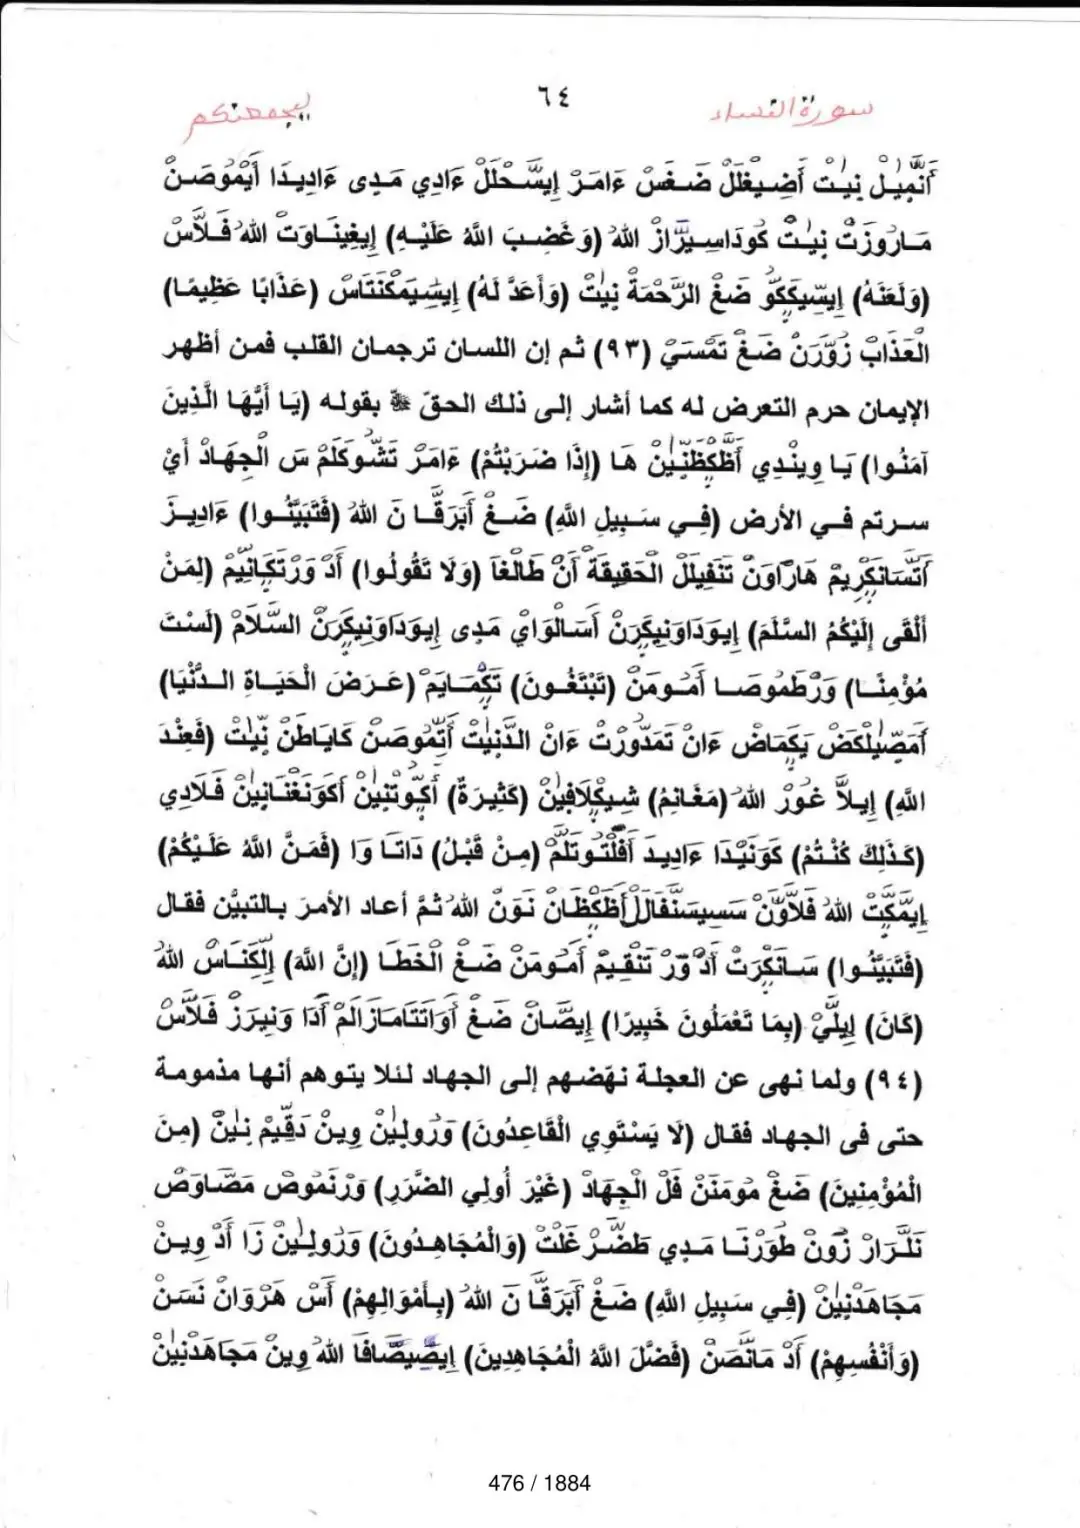 سورة النساء ٦٤ ليجمعنكم
أَنَّمِيلْ نِيتْ أَضِيغْلَلْ ضَغْسْ ءَامَرْ إِيسَّحْلَلْ ءَادِي مَدِى ءَادِيدَا أَيْمُوصَنْ
مَارُوزَتْ نِيتْ كُودَاسِيرَّازْ اللهُ (وَغَضِبَ اللَّهُ عَلَيْهِ) إِيغِينَاوَتْ اللهُ فَلَاّسْ
(وَلَعَنَهُ) إِيسِّيكَكُّو ضَغْ الرَّحْمَةْ نِيتْ (وَأَعَدَّ لَهُ) إِيسِّيمَكْنَتَاسْ (عَذَابًا عَظِيمًا)
الْعَذَابْ زُوَّرَنْ ضَغْ تَمْسَيْ (٩٣) ثم إن اللسان ترجمان القلب فمن أظهر
الإيمان حرم التعرض له كما أشار إلى ذلك الحقّ ﷻ بقوله (يَا أَيُّهَا الَّذِينَ
آمَنُوا) يَا وِينْدِي أَظَّكَظَنِّينْ هَا (إِذَا ضَرَبْتُمْ) ءَامَرْ تَشُّوكَلَمْ سَ الْجِهَادْ أَيْ
سرتم في الأرض (فِي سَبِيلِ اللَّهِ) ضَغْ أَبَرَقَّا نَ اللهُ (فَتَبَيَّنُوا) ءَادِيزَ
أَتَّسَانَكْرِيمْ هَارَاوَنْ تَنْفِيلَلْ الْحَقِيقَةْ أَنْ طَالْغَا (وَلَا تَقُولُوا) أَدْ وَرْتَكَانِيمْ (لِمَنْ
أَلْقَى إِلَيْكُمُ السَّلَمَ) إِيوَدَاوَنِيكَرَنْ أَسَالْوَايْ مَدِى إِيوَدَاوَنِيكَرَنْ السَّلَامْ (لَسْتَ
مُؤْمِنًا) وَرْطَمُوصَا أَمُومَنْ (تَبْتَغُونَ) تَكَّمَايَمْ (عَرَضَ الْحَيَاةِ الدُّنْيَا)
أَمَصِّيلْكَضْ يَكْمَاضْ ءَانْ تَمَدُّورْتْ ءَانْ الدُّنِيتْ أَتِّمُوصَنْ كَايَاطَنْ نِّيتْ (فَعِنْدَ
اللَّهِ) إِيلَاّ غُورْ اللهُ (مَغَانِمُ) شِيكْلَافِينْ (كَثِيرَةٌ) أَكِّوتْنِينْ أَكَوَنَغْنَانِينْ فَلَادِي
(كَذَلِكَ كُنْتُمْ) كَوَنَيْدَا ءَادِيدَ أَفَلْتُوتَلَّمْ (مِنْ قَبْلُ) دَاتَا وَا (فَمَنَّ اللَّهُ عَلَيْكُمْ)
إِيمَكَّتْ اللهُ فَلَاّوَنْ سَسِيسَنْفَالَلْ أَظَكَظَانْ نَوَنْ اللهُ ثمَّ أعاد الأمرَ بالتبيُّن فقال
(فَتَبَيَّنُوا) سَانَكْرَتْ أَدْ وَرْ تَنْقِيمْ أَمُومَنْ ضَغْ الْخَطَا (إِنَّ اللَّهَ) إِلَكْنَاسْ اللهُ
(كَانَ) إِيلَّيْ (بِمَا تَعْمَلُونَ خَبِيرًا) إِيضَّانْ ضَغْ أَوَاتَتَامَازَالَمْ أَدَا وَنِيرَزْ فَلَاّسْ
(٩٤) ولما نهى عن العجلة نهّضهم إلى الجهاد لئلا يتوهم أنها مذمومة
حتى فى الجهاد فقال (لَا يَسْتَوِي الْقَاعِدُونَ) وَرُولِينْ وِينْ دَقِّيمْ نِينْ (مِنَ
الْمُؤْمِنِينَ) ضَغْ مُومَنَنْ فَلْ الْجِهَادْ (غَيْرَ أُولِي الضَّرَرِ) وَرْنَمُوصْ مَصَّاوَضْ
نَلَّرَارْ زُونْ طَوُرْنَا مَدِي طَضَّرْغَلْتْ (وَالْمُجَاهِدُونَ) وَرُولِينْ زَا أَدْ وِينْ
مَجَاهَدْنِينْ (فِي سَبِيلِ اللَّهِ) ضَغْ أَبَرَقَّا نَ اللهُ (بِأَمْوَالِهِمْ) أَسْ هَرْوَانْ نَسَنْ
(وَأَنْفُسِهِمْ) أَدْ مَانَّصَنْ (فَضَّلَ اللَّهُ الْمُجَاهِدِينَ) إِيصِّيصَّافَا اللهُ وِينْ مَجَاهَدْنِينْ
476 / 1884